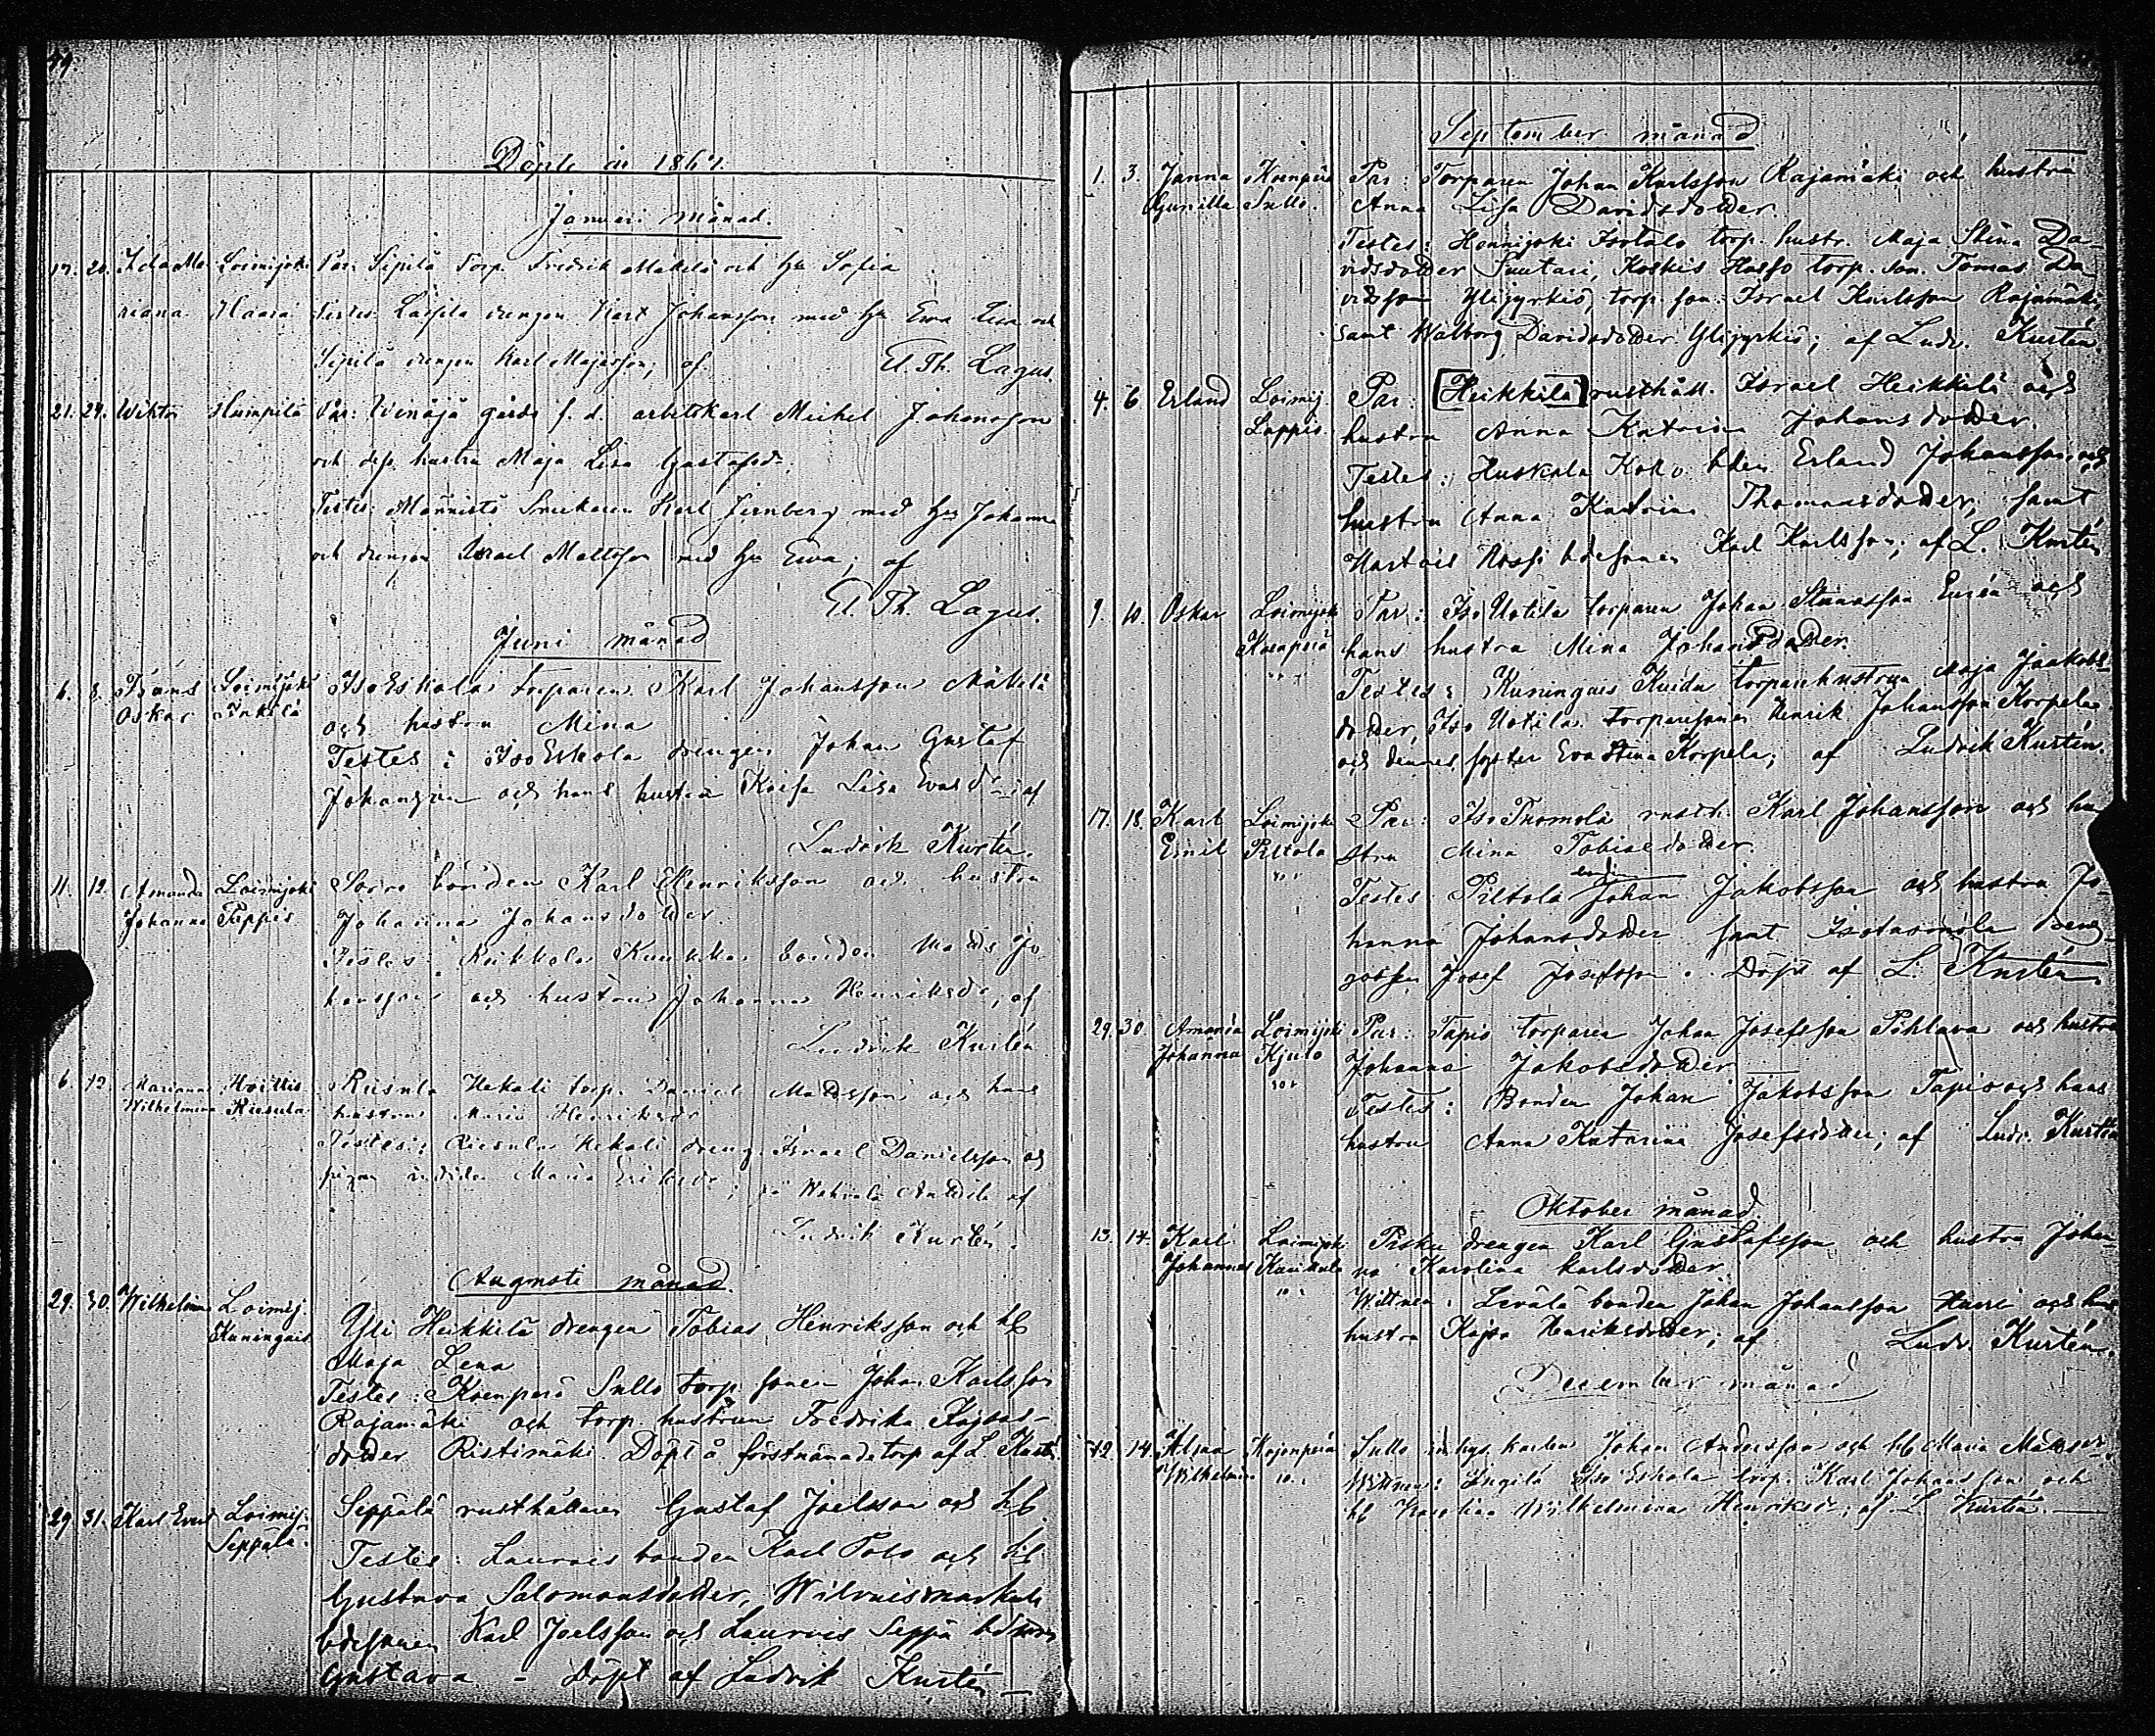 49.
Döpte år 1867.
Januari månad.
17. 20. Ida Ma- Loimijoki Par: Sipilä Torp. Fredrik Mäkelä och Hu Sofia
riana Haara Testes: Lassila drengen Karl Johansson med Hu Ewa Lisa och
Sipilä drengen Karl Majasson, af El. Th. Lagus.
21. 24. Wiktor Humpila Par: Weinäjä gårds f. d. arbetskarl Michel Johansson
och dess hustru Maja Lisa Gustafsdr.
Testes: Männistö Snickaren Karl Jernberg med Hu Johanna
och drengen Israel Mattsson med Hu Ewa; af
El. Th. Lagus.
Juni månad
6. 8. Frans Loimijoki IsoEskola torparen Karl Johansson Mäkelä
Oskar Inkilä och hustru Mina
Testes: IsoEskola drengen Johan Gustaf
Johansson och hans hustru Kaisa Lisa Evasdr; af
Ludvik Kurtén.
11. 12. Amanda Loimijoki Sorro bonden Karl Henriksson och hustru
Johanna Peppis Johanna Johansdotter
Testes: Reikkola Kuukka bonden Matts Jo
hansson och hustru Johanna Henriksdr, af
Ludvik Kurtén
6. 12. Marianna Hoittis Riesula Uskali torp. Daniel Mattsson och hans
Wilhelmina Riesula hustru Maria Henriksdr
Testes: Riesula Uskali dreng. Israel Danielsson och
pigan Maria Eriksdr; af
Ludvik Kurtén.
Augusti månad.
29. 30. Wilhelmina Loimij. Yli Heikkilä drengen Tobias Henriksson och h
Kuningais Maja Lena
Testes: Koenperä Sullo torp. sonen Johan Karlsson
Rajamäki och torp. hustrun Fredrika Kajsas-
dotter Ristimäki. Döpt å förstnämnde torp af L. Kurtén
29 31. Karl Evert Loimij. Seppälä rusthållaren Gustaf Joelsson och h
Seppälä. Testes: Laurois bonden Karl Polo och h
Gustava Salomonsdotter, Wilvaismarkula
bdesonen Karl Joelsson och Laurois Seppä bd
Gustava – Döpt af Ludvik Kurtén –
September månad
1. 3. Janna Koenperä Par: Torparen Johan Karlsson Rajamäki och hustru
Gunilla Sullo. Anna Lisa Davidsdotter.
Testes: Hennijoki Isotalo torp. hustr. Maja Stina Da-
vidsdotter Suutari, Koskis Hasso torp. son. Tomas Da-
vidsson Ylijyrkiö, torp. son. Israel Karlsson Rajamäki,
samt Walborg Davidsdotter Ylijyrkiö; af Ludv. Kurtén.
4. 6 Erland Loimij Par: Heikkilä rusthåll. Israel Heikkilä och
Lappis. hustru Anna Katrina Johansdotter.
Testes: Huskala Koko bden Erland Johansson och
hustru Anna Katrina Thomasdotter, samt
Hartois Rossi bdesonen Karl Karlsson; af L. Kurtén
9. 10. Oskar Loimijoki Par: Iso Uotila torparen Johan Stinasson Eurén och
Koenperä hans hustru Mina Johansdotter.
Testes: Kuningais Kuida torparehustrun Maja Jaakobs-
dotter, Iso Uotila torparesonen Henrik Johansson Korpela
och dennes syster Eva Stina Korpela; af Ludvik Kurtén.
17. 18. Karl Loimijoki Par: Iso Tuomola rusth. Karl Johansson och hu
Emil Piltola stru Mina Tobiasdotter.
Testes: Piltola Johan Jakobsson och hustru Jo-
hanna Johansdotter samt Isotuomola dreng-
gossen Josef Josefsson. Döpt af L. Kurtén.
29. 30. Amanda Loimijoki Par: Tapio torparen Johan Josefsson Pihlava och hustru
Johanna Kjulo Johanna Jakobsdotter
Testes: Bonden Johan Jakobsson Tapio och hans
hustru Anna Katarina Josefsdotter; af Ludv. Kurtén
Oktober månad.
13. 14. Karl Loimijoki Pesku drengen Karl Gustafsson och hustru Johan-
Johannes Kurikula na Karolina Karlsdotter.
Wittnen: Levälä bonden Johan Johansson och hans
hustru Kajsa Henriksdotter; af Ludv. Kurtén.
December månad
12. 14. Alma Kojonperä Sullo inhys. karlen Johan Andersson och h Maria Mattsdr.
Wilhelmina Wittnen: Ingilä Iso Eskola torp. Karl Johansson och
h Karolina Wilhelmina Henriksdr; af L. Kurtén. —